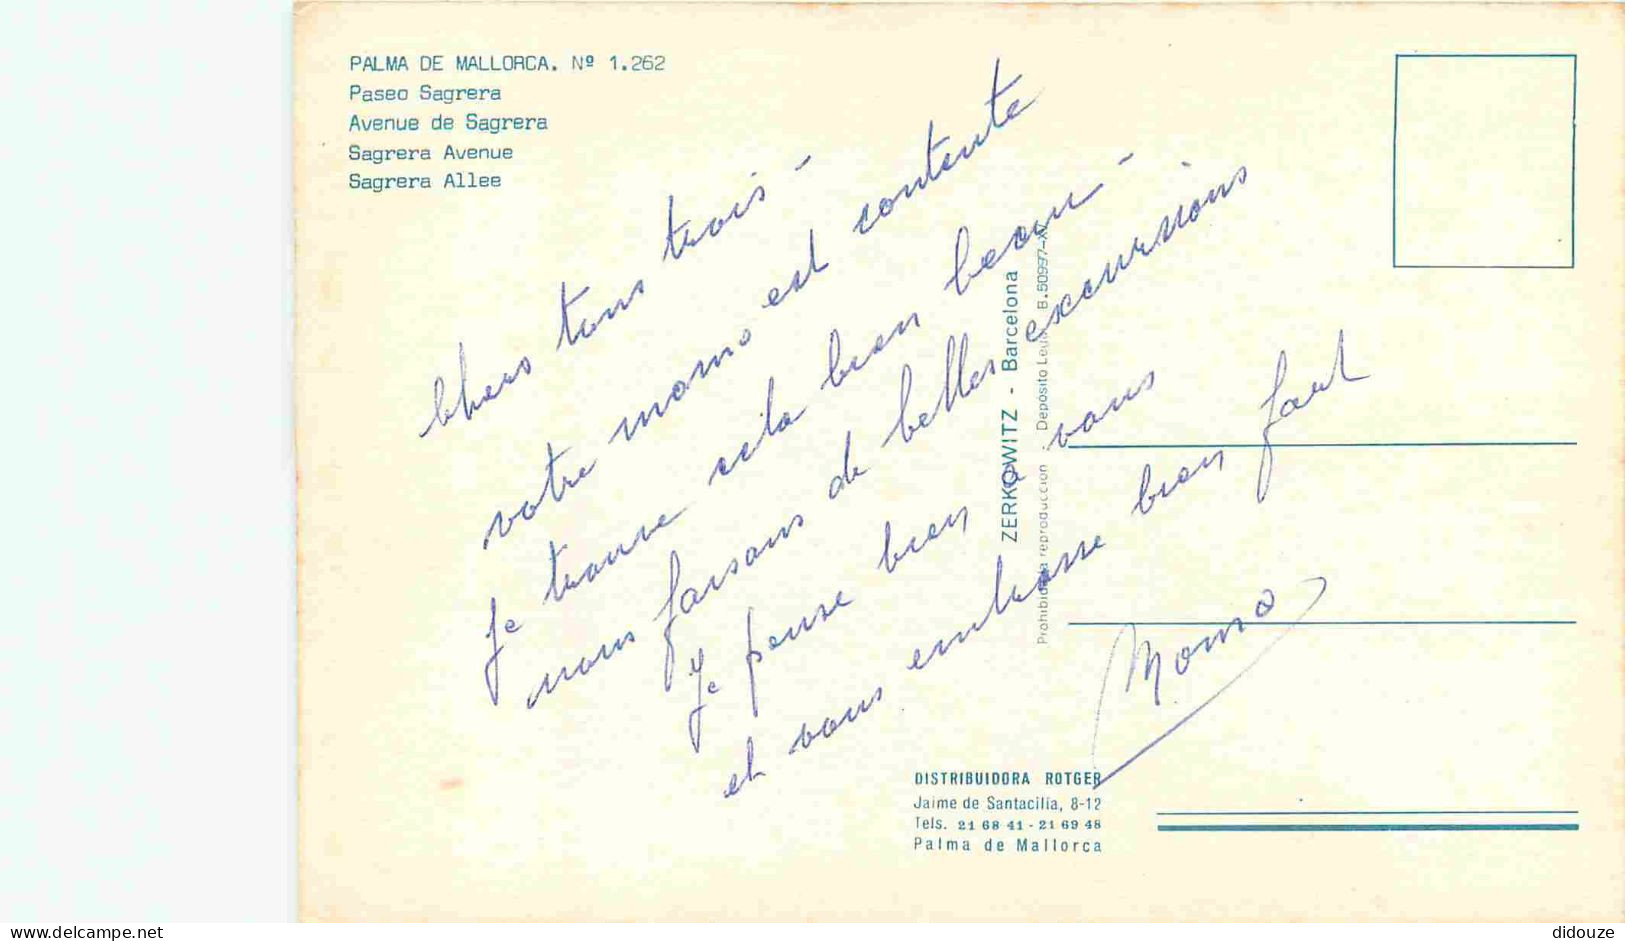 PALMA DE MALLORCA. Nº 1.262
Paseo Sagrera
Avenue de Sagrera
Sagrera Avenue
Sagrera Allee
Chers tous trois -
votre momo est contente
Je trouve cela bien beau -
nous faisons de belles excursions
Je pense bien à vous
et vous embrasse bien fort
Momo
ZERKOWITZ - Barcelona
Prohibida la reproducción - Depósito Legal B. 50997-XV
DISTRIBUIDORA ROTGER
Jaime de Santacilia, 8-12
Tels. 21 68 41 - 21 69 48
Palma de Mallorca
www.delcampe.net
didouze